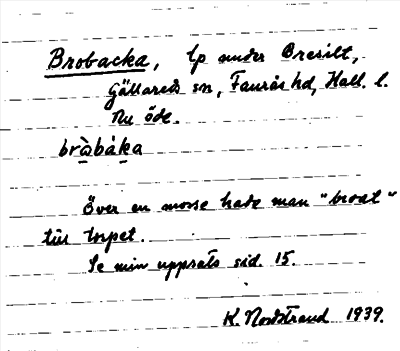 Brobacka, lp under Bresilt,
Gällareds sn, Faurås hd, Hall. l.
Nu öde.
bròbåka
Över en mosse hade man "broat"
till torpet.
Se min uppsats sid. 15.
K. Nordstrand 1939.